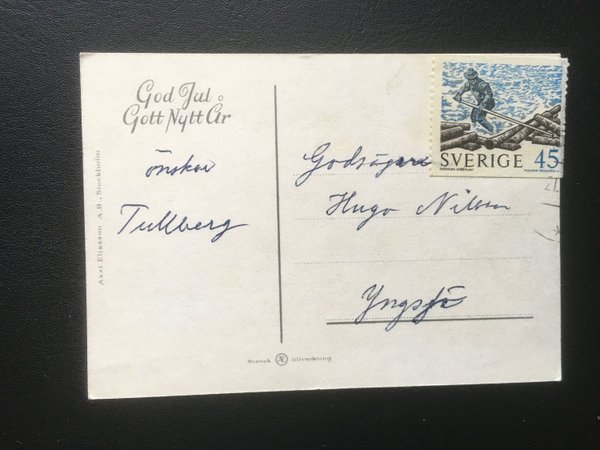 God Jul
Gott Nytt År
önskar
Tullberg
Axel Eliasson A.B., Stockholm
Svensk Æ tillverkning
SVERIGE 45
Godsägare
Hugo Nilsson
Yngsjö
21.